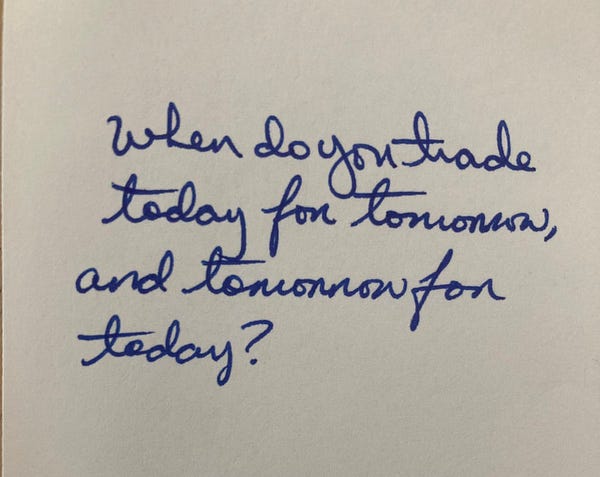 When do you trade
today for tomorrow,
and tomorrow for
today?